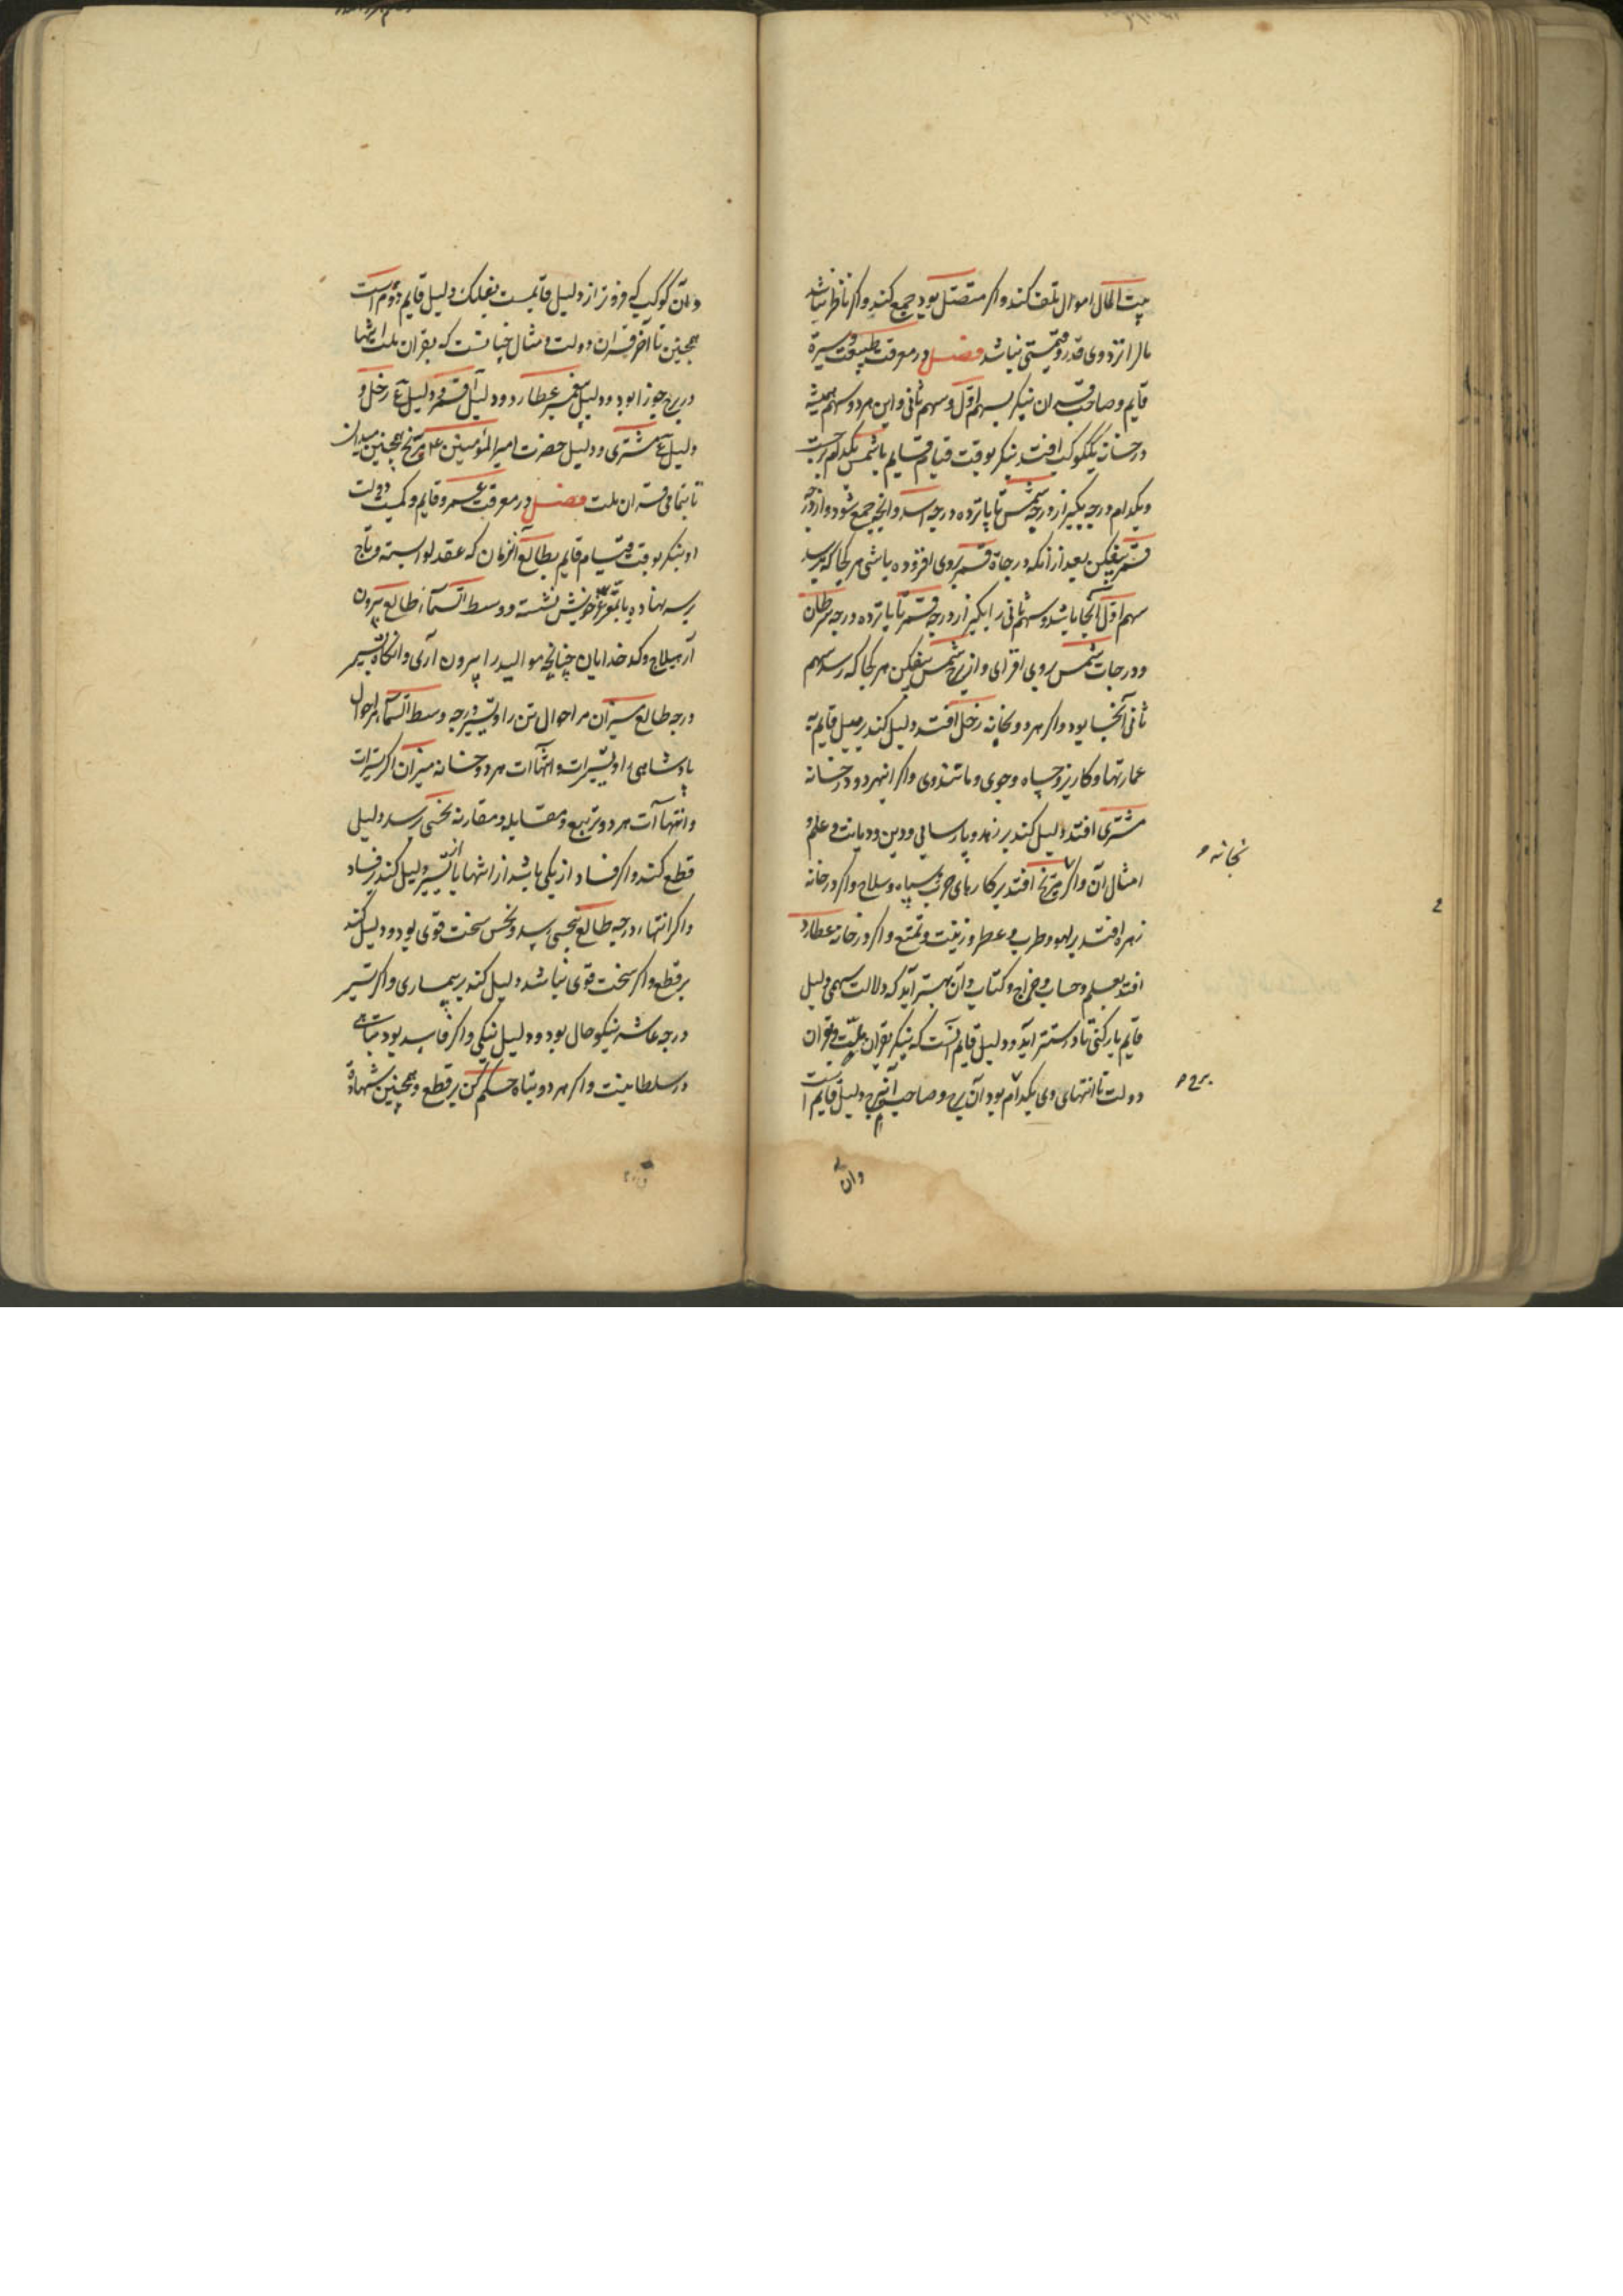 بیت المال اموال تلف کند و اکر متصل بود جمع کند و اکر ناظر نباشد
مال را نزد وی قدر و قیمتی نباشد فصل در معرفت طبیعت و سیرة
قایم و صاحب قران بنکر بسهم اول و سهم ثانی و این هر دو سهم همیشه
در خانه یک کوکب افتد بنکر بوقت قیام قایم یا شمس بکدام برجست
و بکدام درجه بکیر از درجه شمس تا پانزده درجه اسد و آنچه جمع شود و از درجه
قمر بیفکن بعد از آنکه درجاة قمر بر وی افزوده باشی هر کجا که برسد
سهم اول آنجا باشد و سهم ثانی را بکیر از درجه قمر تا پانزده درجه سرطان
و درجات شمس بر وی افزای و از برج شمس بیفکن هر کجا که رسد سهم
ثانی آنجا بود و اکر هر دو بخانه زحل افتد دلیل کند بر میل قایم به
عمارتها و کاریز و چاه و جوی و مانند وی و اکر اینهر دو در خانه
مشتری افتد دلیل کند بر زهد و پارسایی و دین و دیانت و علم و
امثال آن و اکر مریخ افتد بر کارهای حرب و سپاه و سلاح و اکر در خانه
زهره افتد بر لهو و طرب و عطر و زینت و تمتع و اکر در خانه عطارد
افتد بعلم و حساب و خراج و کتاب و آن بهتر آید که دلالت سهمی دلیل
قایم یار کنی تا درستتر آید و دلیل قایم آنست که بنکر بقران ملت و قران
دولت تا انتهای وی بکدام بود آن برج و صاحب آن برج دلیل قایم است
بخانه
برج
وان
وان کوکب که فروتر از دلیل قایمست بفلک دلیل قایم دوم است
همچنین تا آخر قران دولت و مثال چنانست که بقران ملت انتها
در برج جوزا بود و دلیل پیغمبر عطارد و دلیل آن قمر و دلیل ع زحل و
دلیل ع مشتری و دلیل حضرت امیر المؤمنین ع مریخ همچنین میدان
تا بتمامی قران ملت فصل در معرفت عمر و قایم و کمیت دولت
او بنکر بوقت قیام قایم بطالع آنزمان که عقد لوا بسته و تاج
بر سر نهاده یا بموضع خویش نشسته و وسط السماء از طالع بیرون
آر هیلاج و کدخدایان چنانچه موالید را بیرون آری و آنکاه تسیر
درجه طالع میران مر احوال تن را و تسیر درجه وسط السماء مر احوال
پادشاهی او تسیرات و انتهاآت هر دو خانه میران اکر تسیرات
و انتهاآت هر دو تربیع و مقابله و مقارنه نحسی رسد دلیل
قطع کند و اکر فساد از یکی باشد از انتها یا از تسیر دلیل کند بر فساد
و اکر انتهاء درجه طالع بنحسی رسد و نحس سخت قوی بود دلیل کند
بر قطع و اکر سخت قوی نباشد دلیل کند بر بیماری و اکر تسیر
درجه عاشر نیکو حال بود دلیل نیکی و اکر فاسد بود تباهی
در سلطانیت و اکر هر دو تباه حکم کن بر قطع و همچنین شهادة